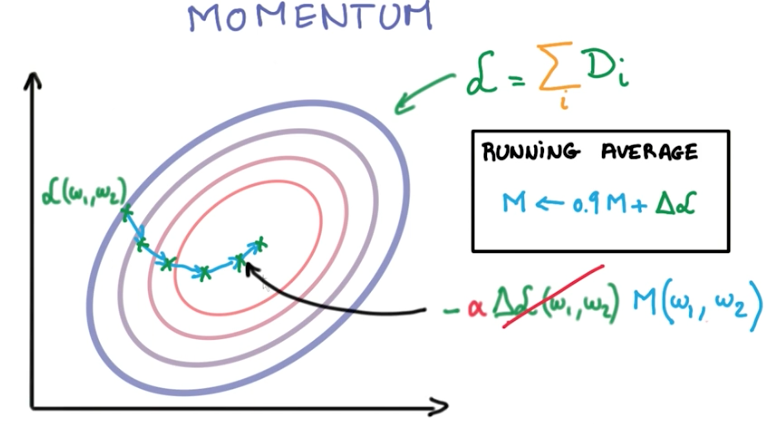 MOMENTUM
ℒ = ∑ Dᵢ
i
RUNNING AVERAGE
M ← 0.9 M + Δℒ
ℒ(ω₁,ω₂)
-α Δℒ(ω₁,ω₂) M(ω₁, ω₂)